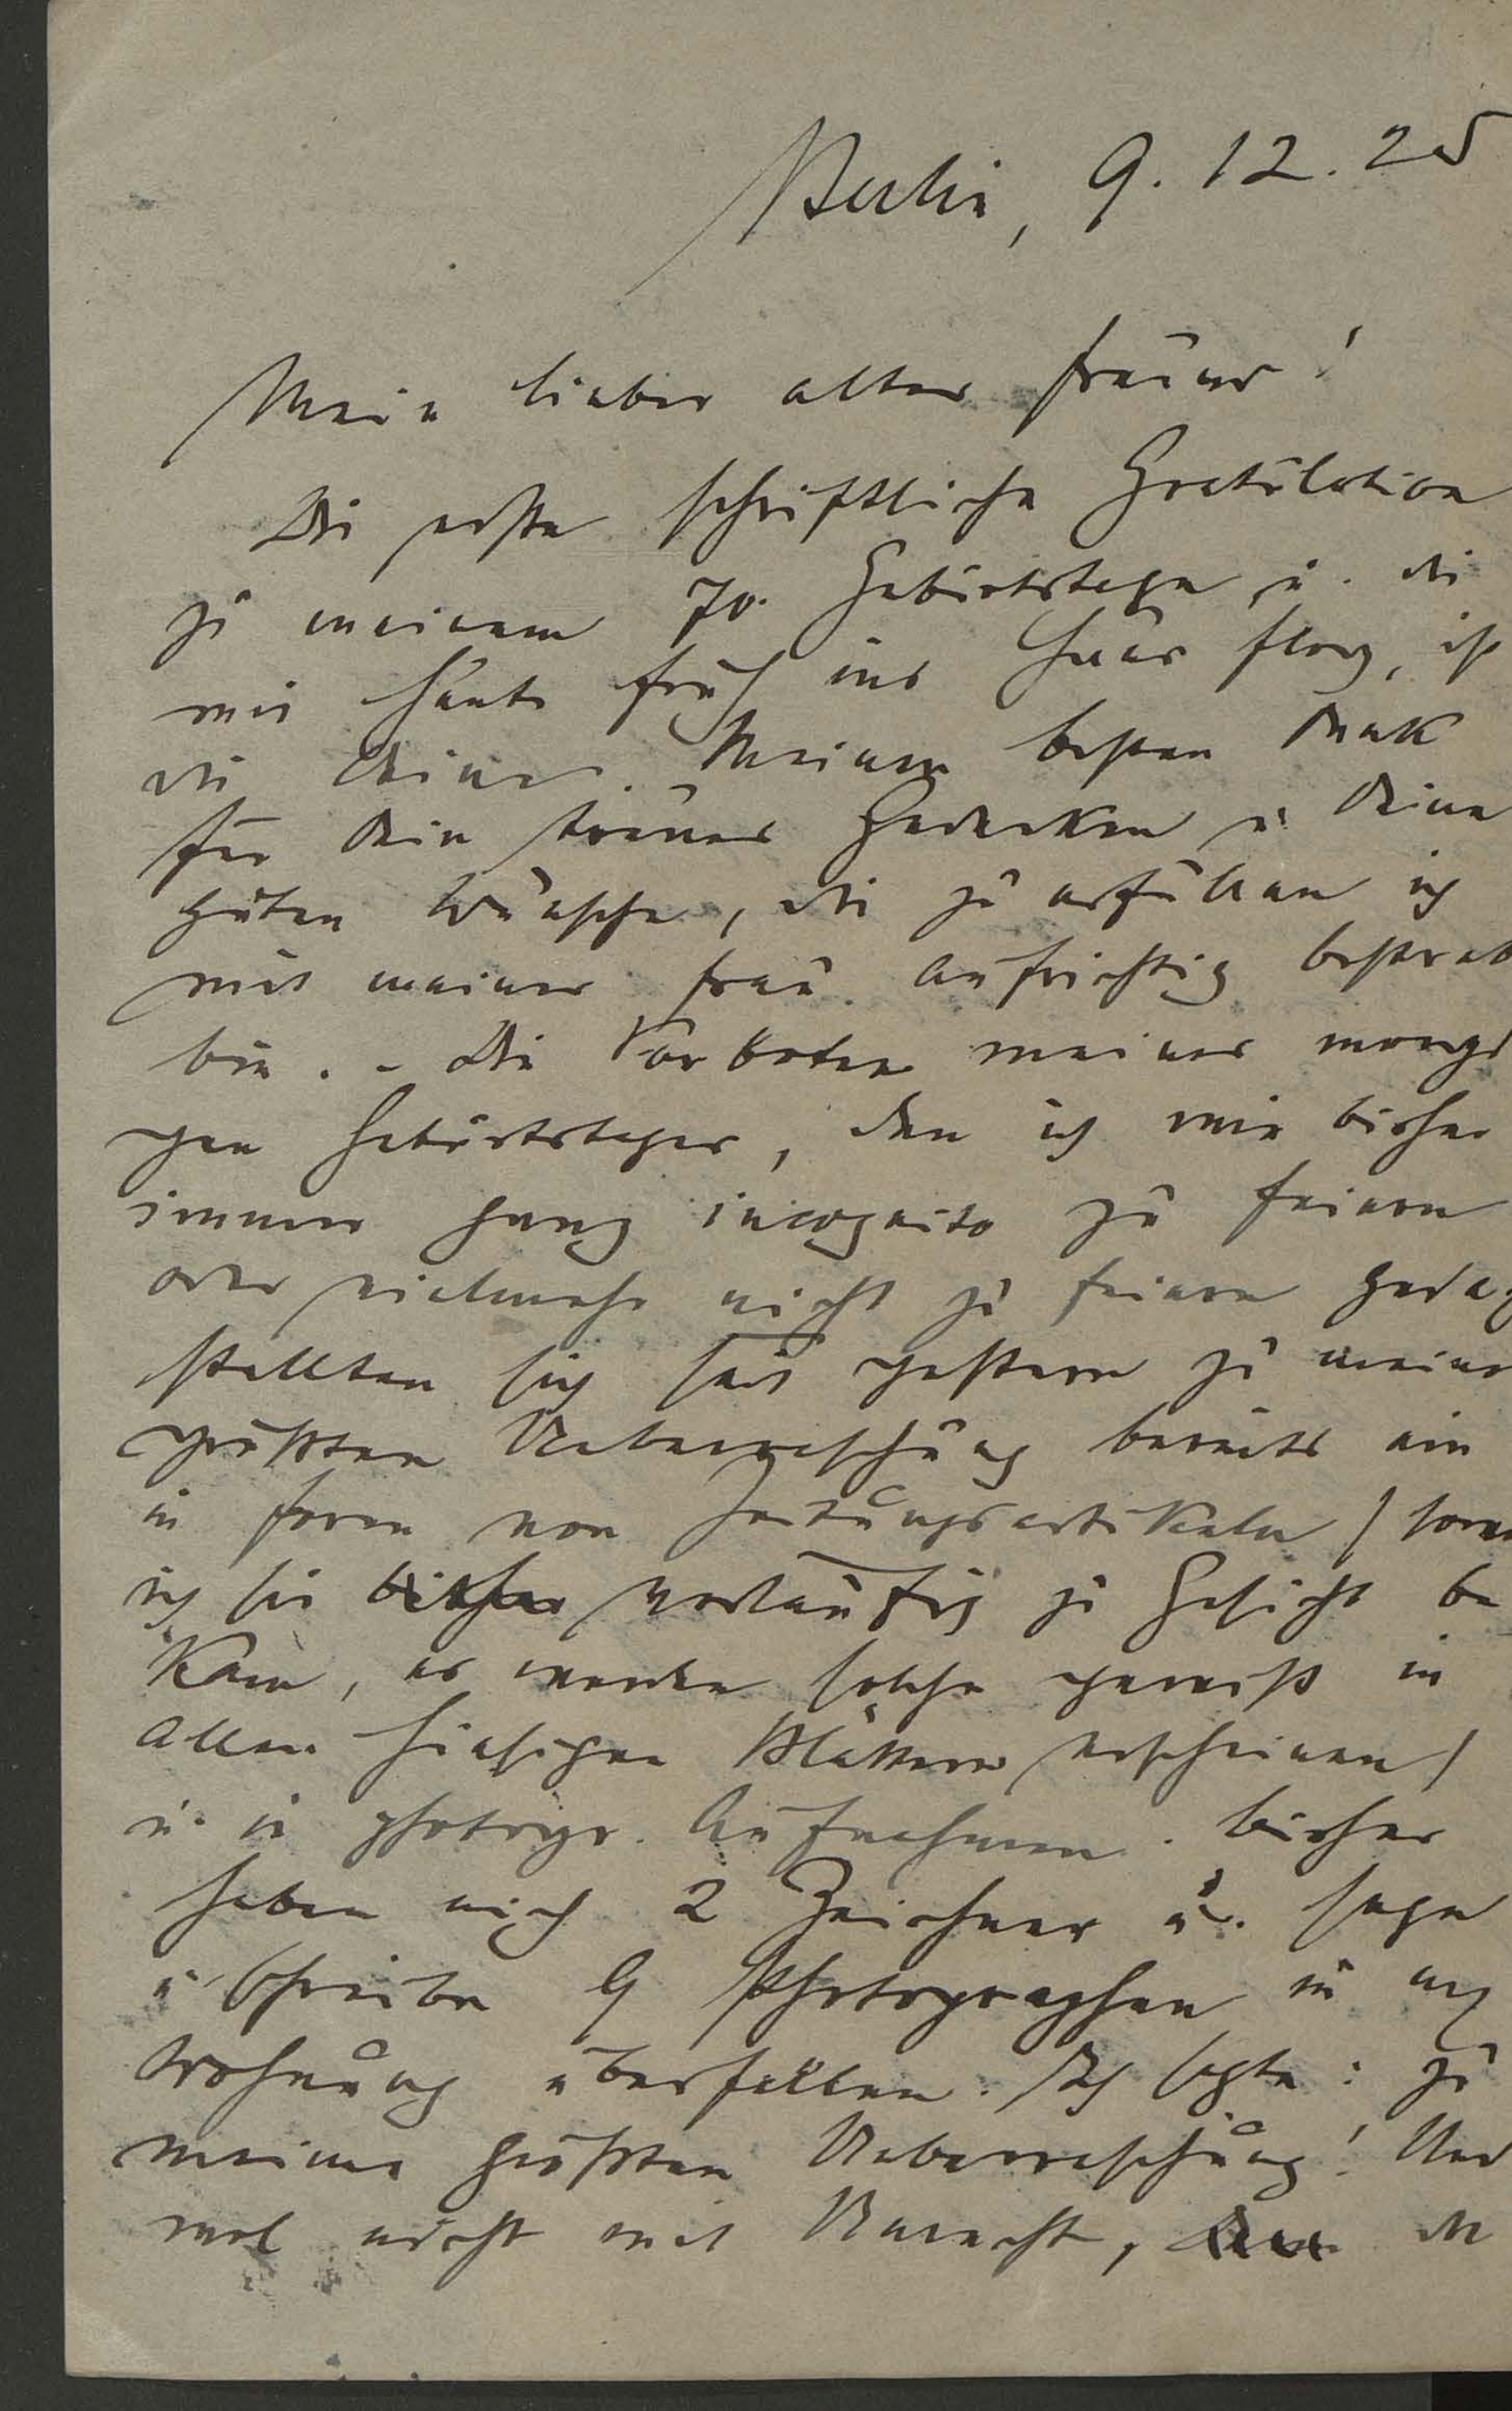 Berlin, 9. 12. 25
Mein lieber alter Freund!
Die erste schriftliche Gratulation
zu meinem 70. Geburtstage u. die
mir heute früh ins Haus flog, ist
die Deine. Meinen besten Dank
für Dein treues Gedenken u. Deine
guten Wünsche, die zu erfüllen ich
mit meiner Frau aufrichtig bestrebt
bin. – Die Vorboten meines morgi
gen Geburtstages, den ich wie bisher
immer ganz incognito zu feiern
oder vielmehr nicht zu feiern gedach
stellten sich seit gestern zu meiner
größten Ueberraschung bereits ein
in Form von Zeitungsartikeln (soweit
ich sie bisher vorläufig zu Gesicht be
kam, es werden solche gewiß in
allen hiesigen Blättern erscheinen)
u. in photogr. Aufnahmen. Bisher
haben mich 2 Zeichner u. sage
u schreibe 9 Photographen in m
Wohnung überfallen. Ich sagte: zu
meiner größten Ueberraschung! Und
wol nicht mit Unrecht, de